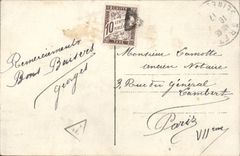 Remerciements
Bons Baisers
Georges
10
Monsieur Lamotte
ancien Notaire
3, Rue du Général
Lambert
Paris
VIIème